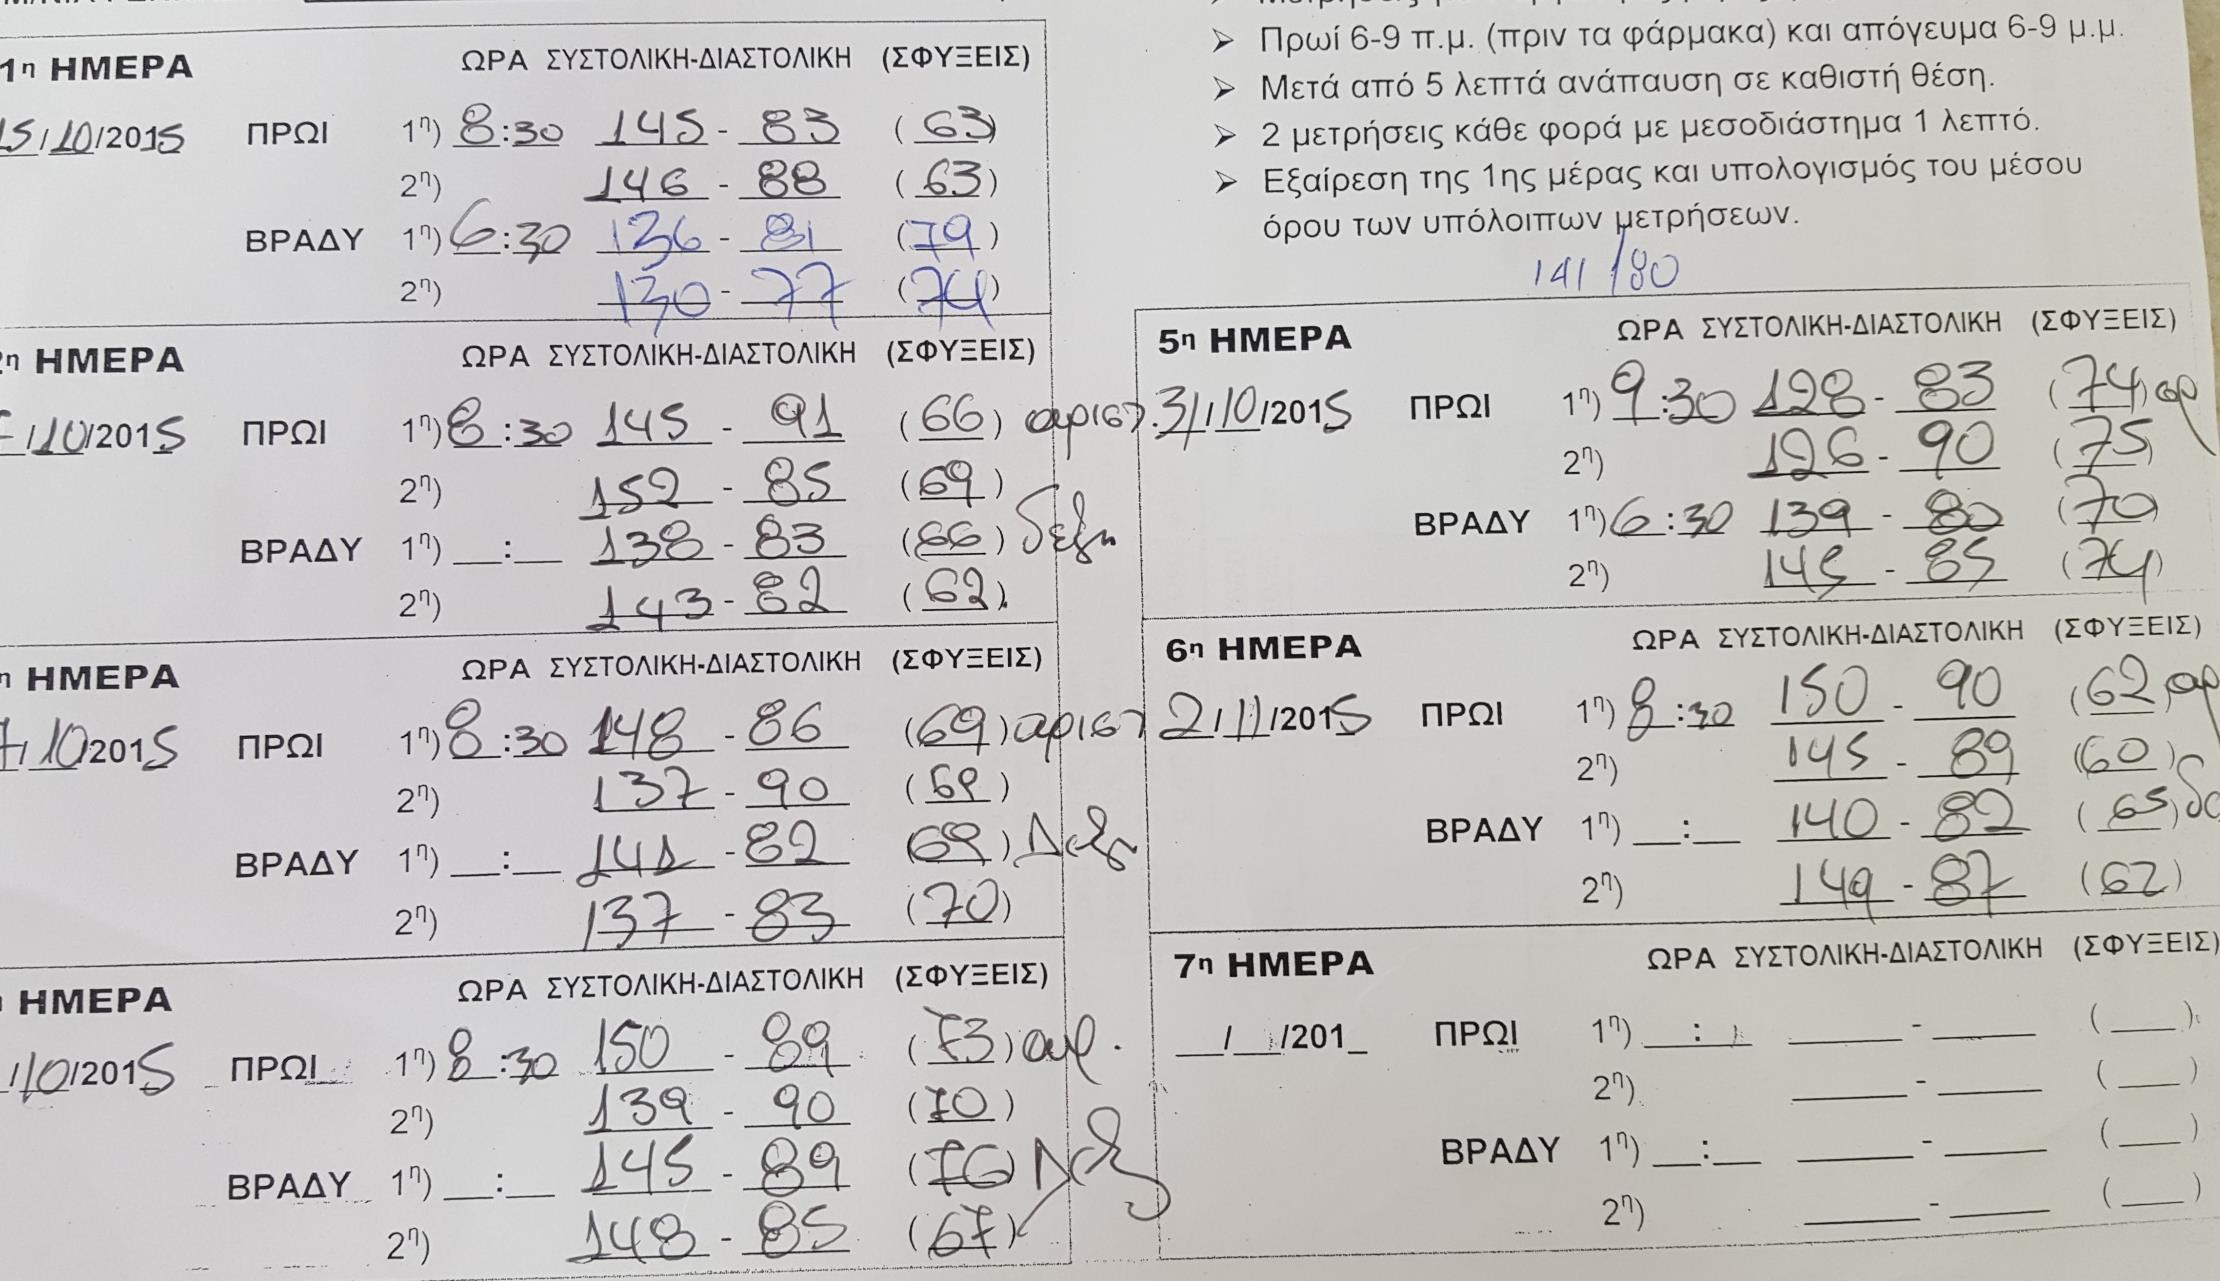 1η ΗΜΕΡΑ ΩΡΑ ΣΥΣΤΟΛΙΚΗ-ΔΙΑΣΤΟΛΙΚΗ (ΣΦΥΞΕΙΣ)
15/10/2015 ΠΡΩΙ 1η) 8:30 145 - 83 (63)
2η) 146 - 88 (63)
ΒΡΑΔΥ 1η) 6:30 136 - 81 (79)
2η) 130 - 77 (74)
2η ΗΜΕΡΑ ΩΡΑ ΣΥΣΤΟΛΙΚΗ-ΔΙΑΣΤΟΛΙΚΗ (ΣΦΥΞΕΙΣ)
/10/2015 ΠΡΩΙ 1η) 8:30 145 - 91 (66) αριστ.
2η) 152 - 85 (69)
ΒΡΑΔΥ 1η) __:__ 138 - 83 (66) δεξη
2η) 143 - 82 (62)
η ΗΜΕΡΑ ΩΡΑ ΣΥΣΤΟΛΙΚΗ-ΔΙΑΣΤΟΛΙΚΗ (ΣΦΥΞΕΙΣ)
/10/2015 ΠΡΩΙ 1η) 8:30 148 - 86 (69) αριστ
2η) 137 - 90 (69)
ΒΡΑΔΥ 1η) __:__ 141 - 82 (69) Δεξ
2η) 137 - 83 (70)
ΗΜΕΡΑ ΩΡΑ ΣΥΣΤΟΛΙΚΗ-ΔΙΑΣΤΟΛΙΚΗ (ΣΦΥΞΕΙΣ)
/10/2015 ΠΡΩΙ 1η) 8:30 150 - 89 (73) αρ.
2η) 139 - 90 (70)
ΒΡΑΔΥ 1η) __:__ 145 - 89 (76) Δεξ
2η) 148 - 85 (67)
➢ Πρωί 6-9 π.μ. (πριν τα φάρμακα) και απόγευμα 6-9 μ.μ.
➢ Μετά από 5 λεπτά ανάπαυση σε καθιστή θέση.
➢ 2 μετρήσεις κάθε φορά με μεσοδιάστημα 1 λεπτό.
➢ Εξαίρεση της 1ης μέρας και υπολογισμός του μέσου
όρου των υπόλοιπων μετρήσεων.
141/80
5η ΗΜΕΡΑ ΩΡΑ ΣΥΣΤΟΛΙΚΗ-ΔΙΑΣΤΟΛΙΚΗ (ΣΦΥΞΕΙΣ)
31/10/2015 ΠΡΩΙ 1η) 9:30 128 - 83 (74) αρ
2η) 126 - 90 (75)
ΒΡΑΔΥ 1η) 6:30 139 - 80 (70)
2η) 145 - 85 (74)
6η ΗΜΕΡΑ ΩΡΑ ΣΥΣΤΟΛΙΚΗ-ΔΙΑΣΤΟΛΙΚΗ (ΣΦΥΞΕΙΣ)
2/11/2015 ΠΡΩΙ 1η) 8:30 150 - 90 (62) αρ
2η) 145 - 89 (60)
ΒΡΑΔΥ 1η) __:__ 140 - 82 (65) δε
2η) 149 - 87 (62)
7η ΗΜΕΡΑ ΩΡΑ ΣΥΣΤΟΛΙΚΗ-ΔΙΑΣΤΟΛΙΚΗ (ΣΦΥΞΕΙΣ)
__/__/201_ ΠΡΩΙ 1η) __:__ ____ - ____ (___)
2η) ____ - ____ (___)
ΒΡΑΔΥ 1η) __:__ ____ - ____ (___)
2η) ____ - ____ (___)